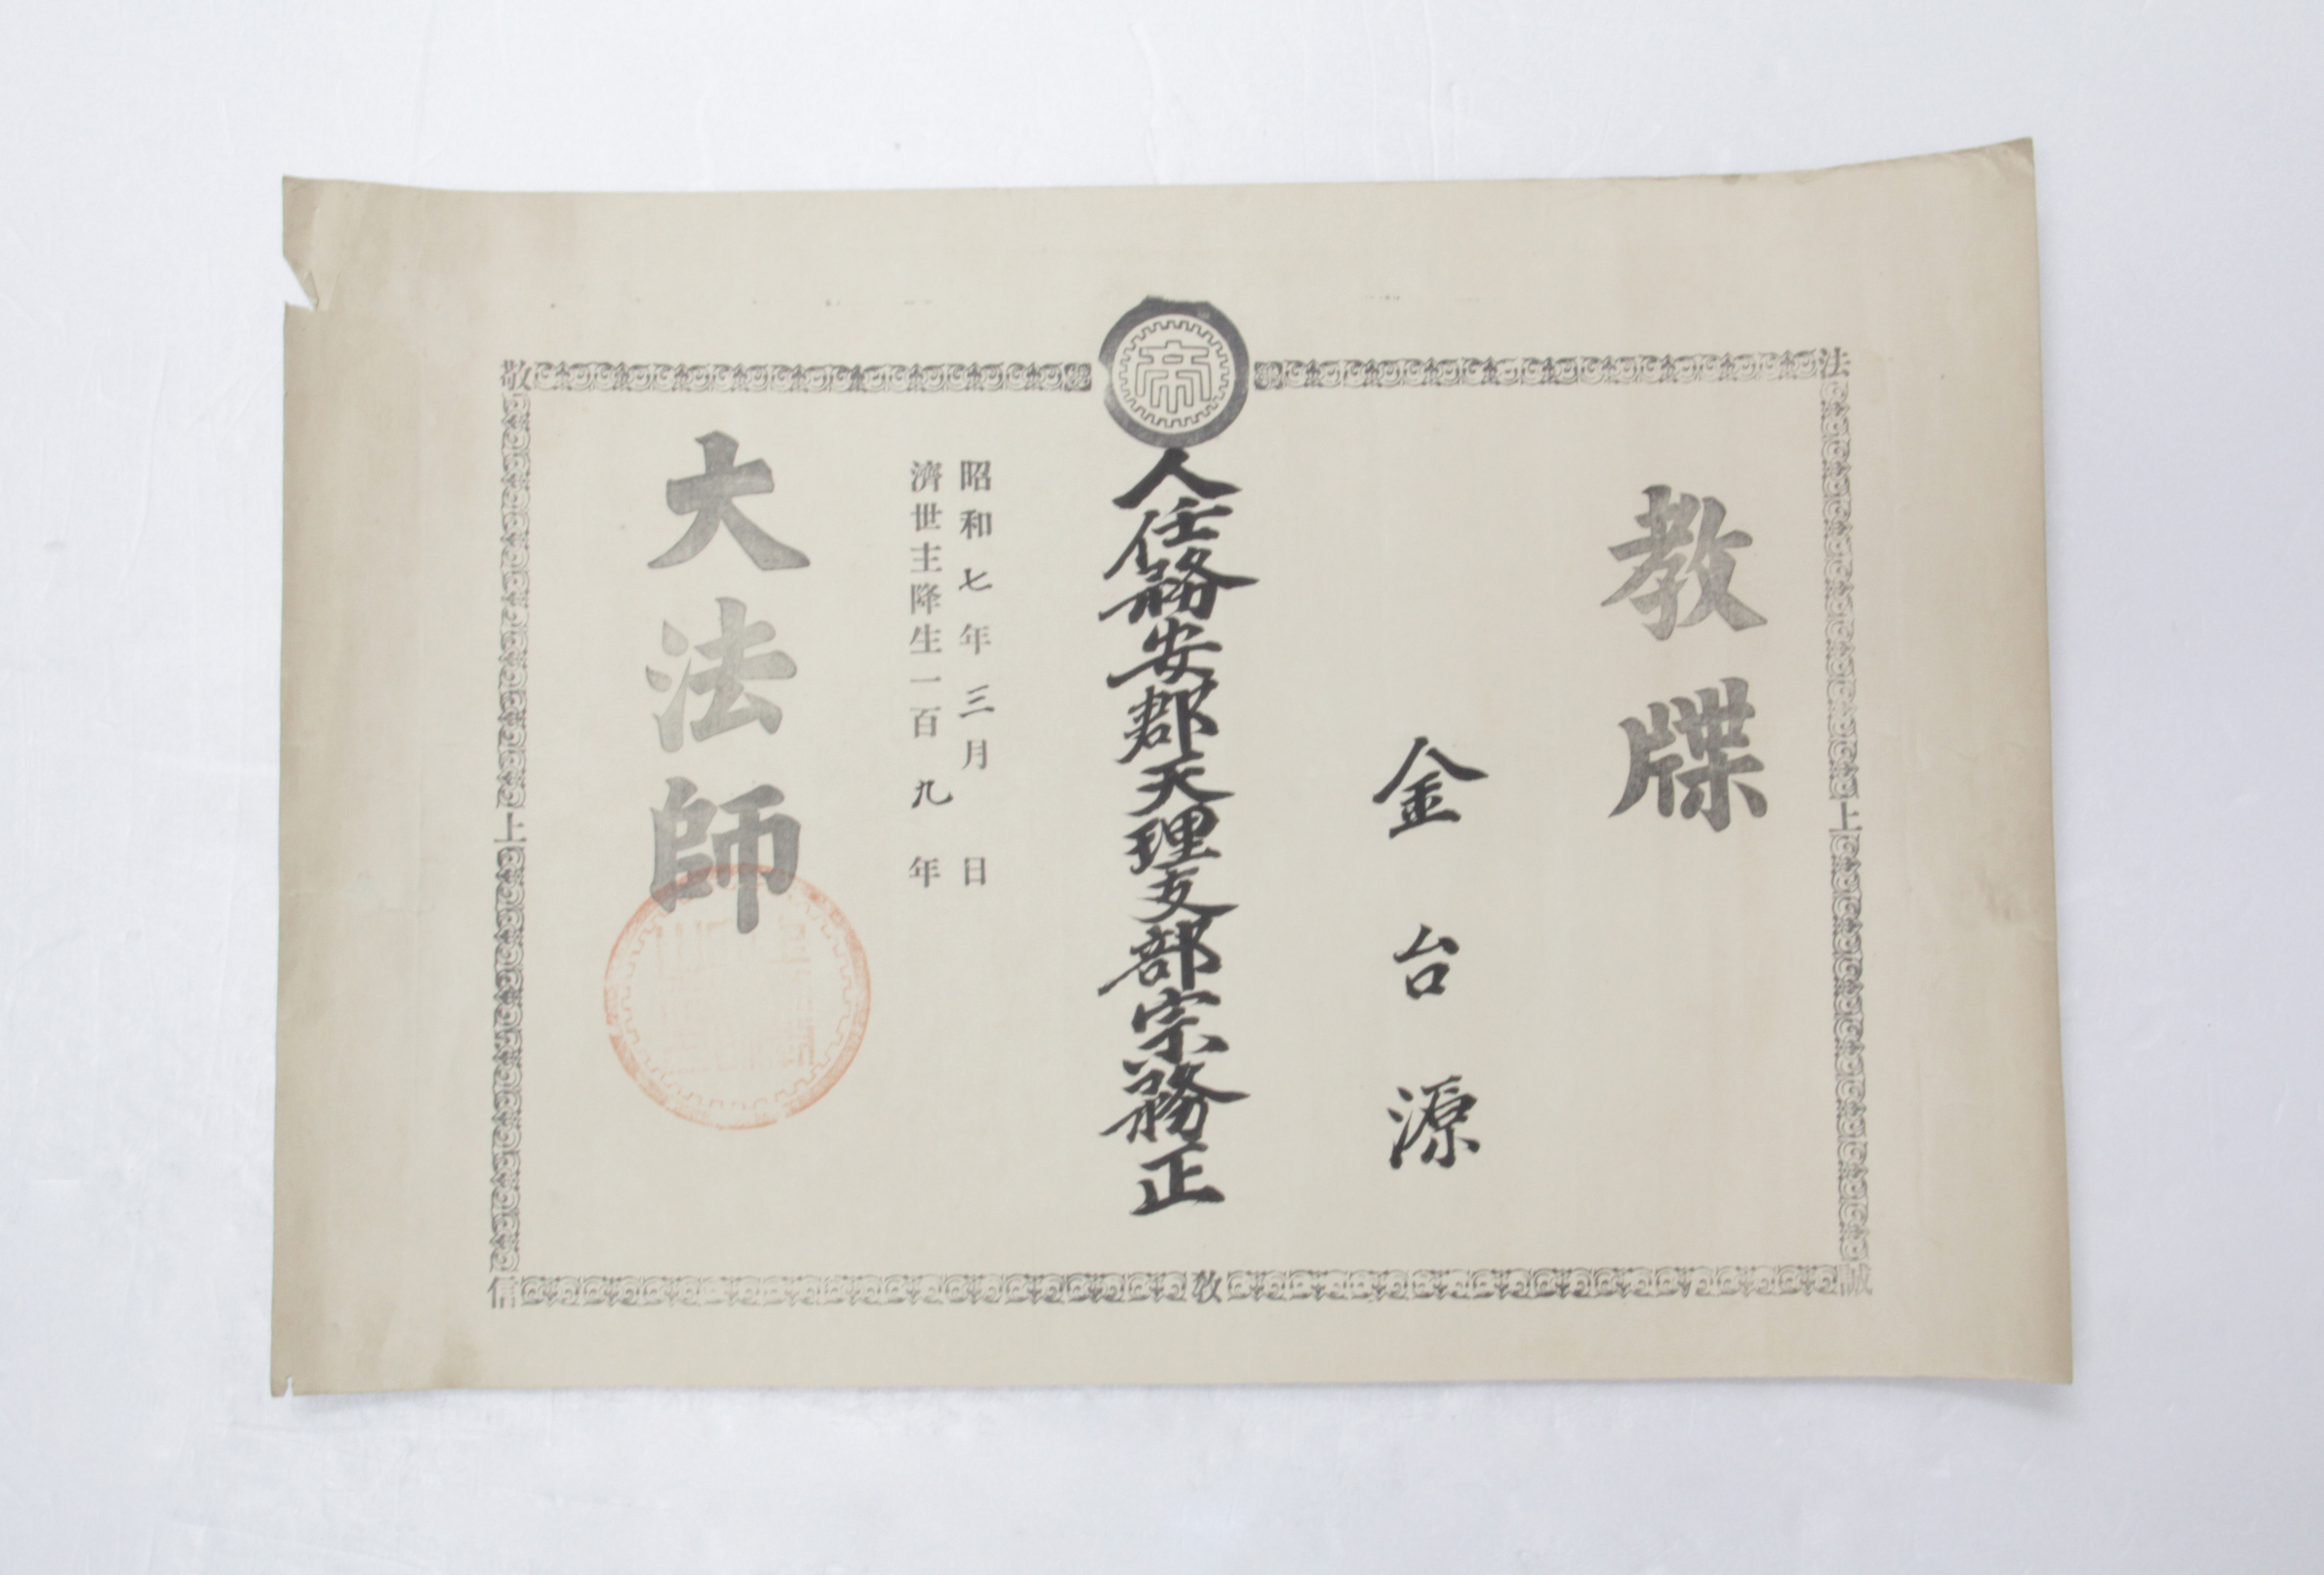 帝
法
敬
上
上
誠
信
教牒
金台源
人任務安郡天理支部宗務正
昭和七年三月 日
濟世主降生一百九年
大法師